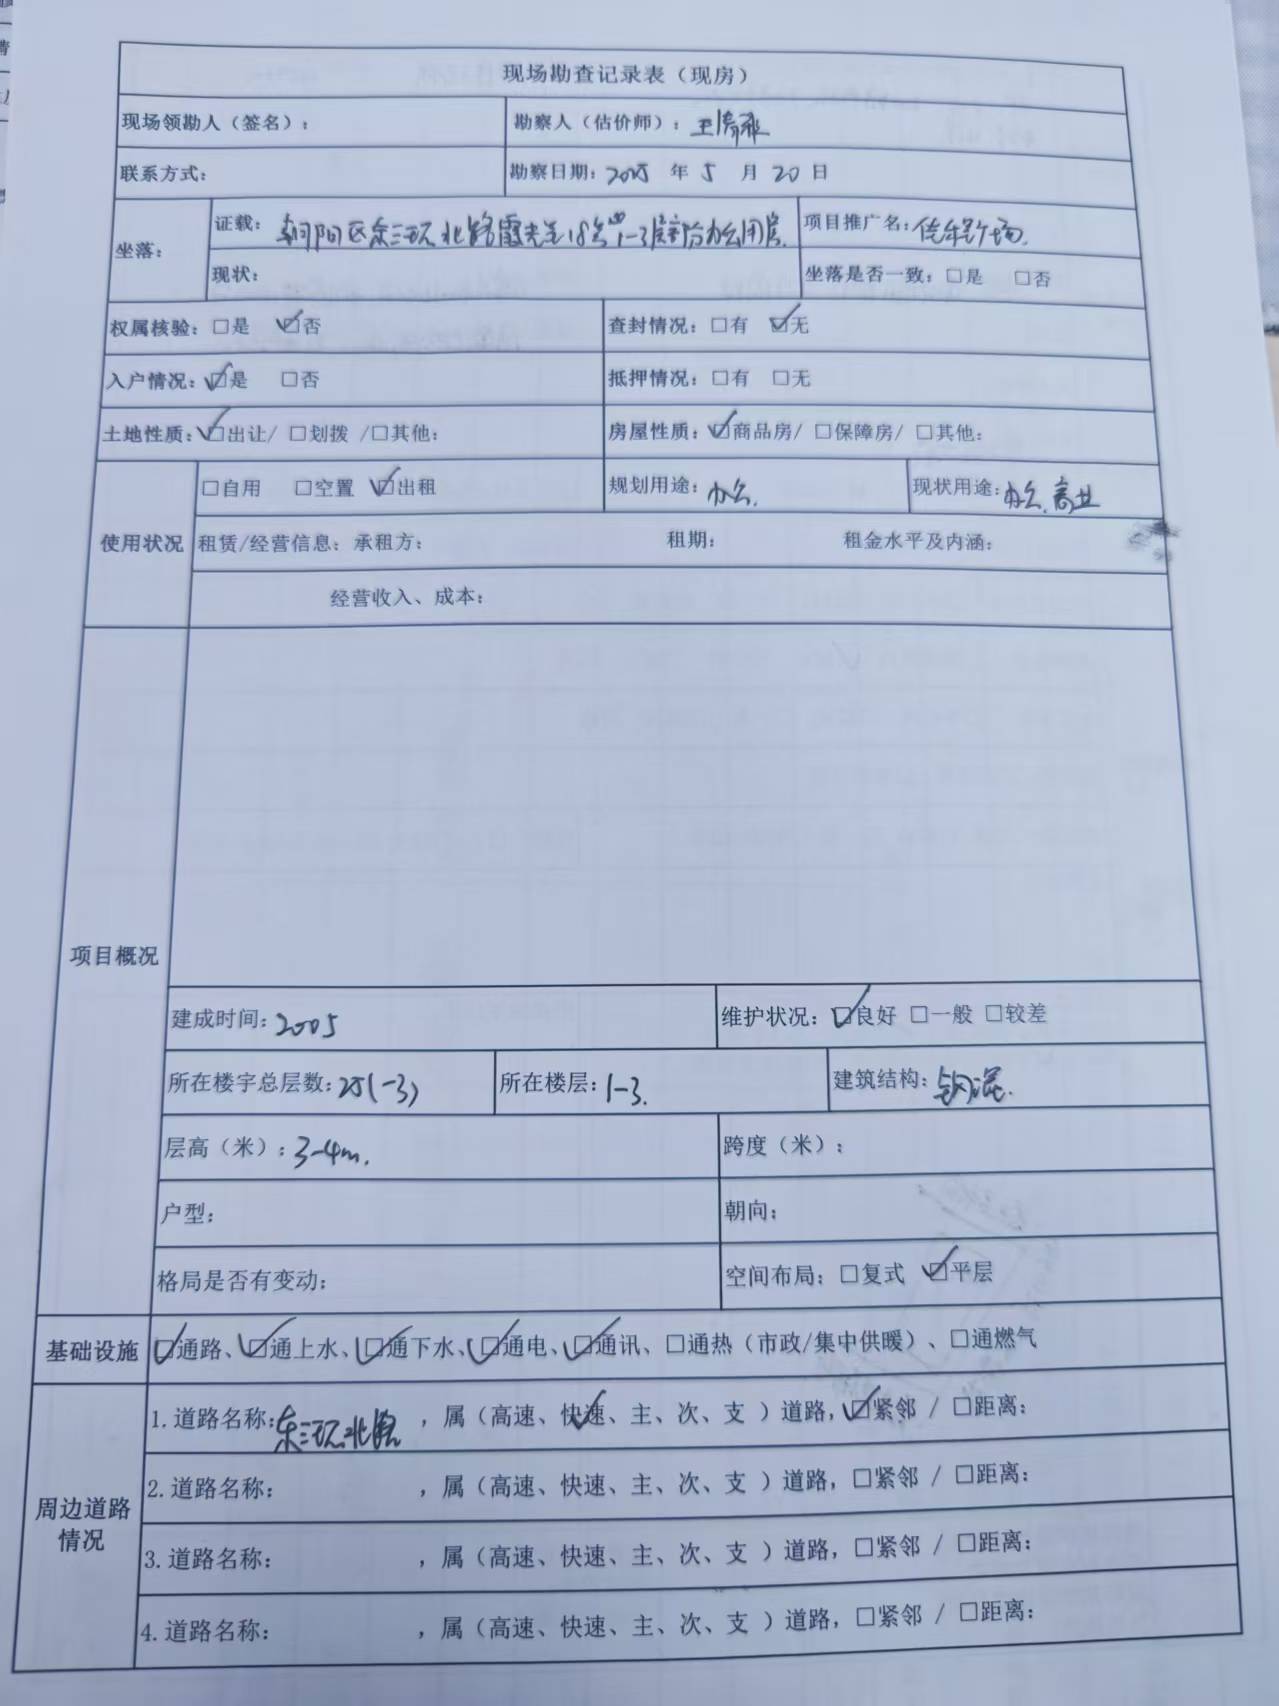 现场勘查记录表（现房）
现场领勘人（签名）： 勘察人（估价师）：
联系方式： 勘察日期：2025 年 5 月 20 日
坐落： 证载：朝阳区东三环北路霞光里18号 1-3层部分办公用房 项目推广名：佳程广场
现状： 坐落是否一致：□是 □否
权属核验：□是 ☑否 查封情况：□有 ☑无
入户情况：☑是 □否 抵押情况：□有 □无
土地性质：☑出让/ □划拨 /□其他： 房屋性质：☑商品房/ □保障房/ □其他：
使用状况 □自用 □空置 ☑出租 规划用途：办公. 现状用途：办公、商业
租赁/经营信息：承租方： 租期： 租金水平及内涵：
经营收入、成本：
项目概况
建成时间：2005 维护状况：☑良好 □一般 □较差
所在楼宇总层数：25(-3) 所在楼层：1-3. 建筑结构：钢混.
层高（米）：3-4m. 跨度（米）：
户型： 朝向：
格局是否有变动： 空间布局：□复式 ☑平层
基础设施 ☑通路、☑通上水、☑通下水、☑通电、☑通讯、□通热（市政/集中供暖）、□通燃气
周边道路情况
1.道路名称：东三环北路 ，属（高速、快速、主、次、支 ）道路，☑紧邻 / □距离：
2.道路名称： ，属（高速、快速、主、次、支 ）道路，□紧邻 / □距离：
3.道路名称： ，属（高速、快速、主、次、支 ）道路，□紧邻 / □距离：
4.道路名称： ，属（高速、快速、主、次、支 ）道路，□紧邻 / □距离：